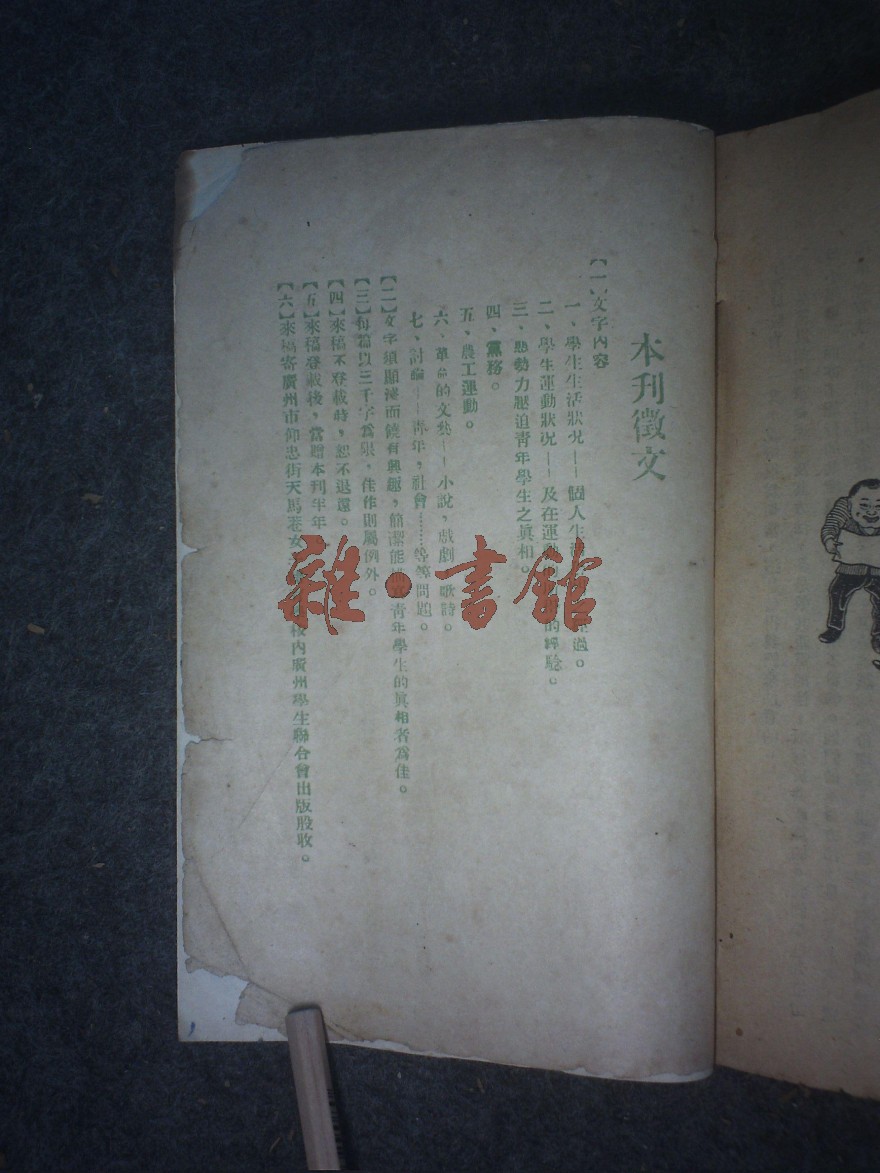 本刋徵文
【一】文字內容
一、學生生活狀况——個人生活
過。
二、學生運動狀况——及在運動
的經驗。
三、惡勢力壓迫靑年學生之眞相。
四、黨務。
五、農工運動。
六、革命的文藝——小說，戲劇，歌詩。
七、討論——靑年，社會………等等問題。
【二】文字須顯淺而饒有興趣，簡潔能
靑年學生的眞相者爲佳。
【三】每篇以三千字爲限，佳作則屬例外。
【四】來稿不登載時，恕不退還。
【五】來稿登載後，當贈本刋半年
【六】來稿寄廣州市仰忠街天馬巷女
校內廣州學生聯合會出版股收。
雜·書館